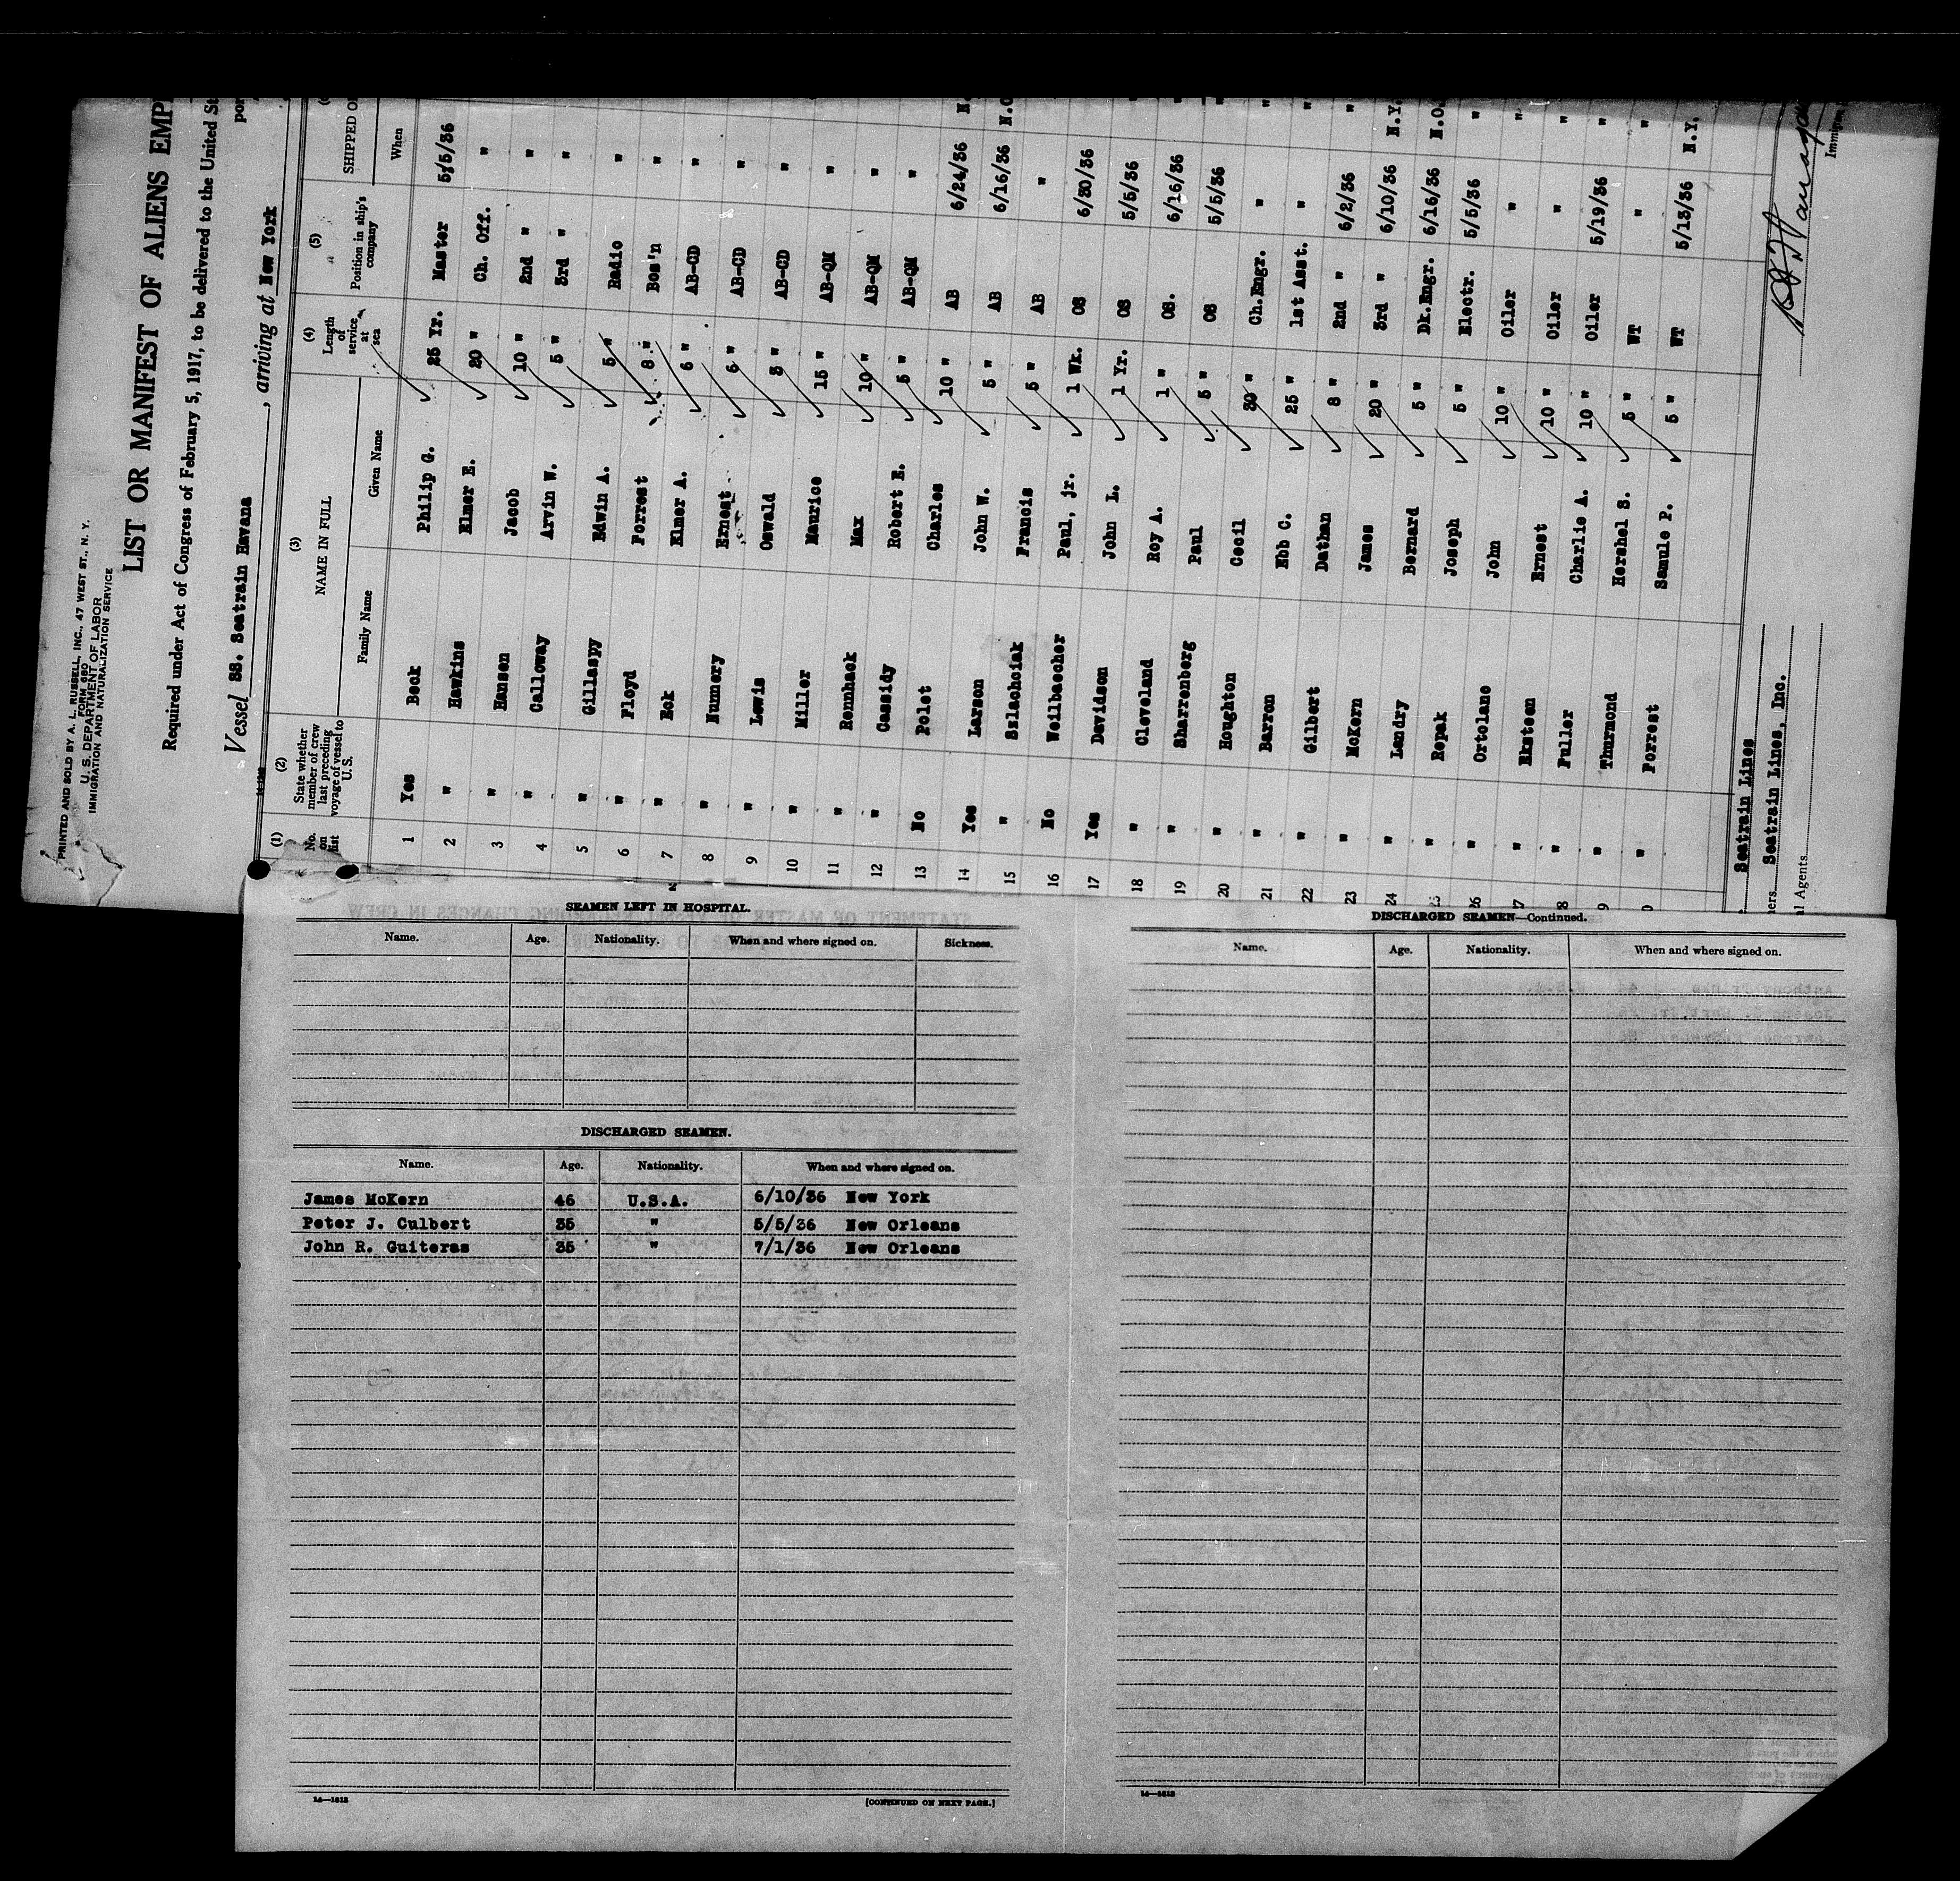 PRINTED AND SOLD BY A. L. RUSSELL, INC., 47 WEST ST., N. Y.
FORM 680
U. S. DEPARTMENT OF LABOR
IMMIGRATION AND NATURALIZATION SERVICE
LIST OR MANIFEST OF ALIENS EMP
Required under Act of Congress of February 5, 1917, to be delivered to the United St
Vessel SS. Seatrain Havana, arriving at New York
(1) (2) (3) (4) (5)
No. on list State whether member of crew last preceding voyage of vessel to U.S. NAME IN FULL Length of service at sea Position in ship's company SHIPPED O
Family Name Given Name When
1 Yes Beck Philip G. 25 Yr. Master 5/5/36
2 " Hawkins Elmer E. 20 " Ch. Off. "
3 " Hansen Jacob 10 " 2nd " "
4 " Calloway Arvin W. 5 " 3rd " "
5 " Gillaspy Edwin A. 5 " Radio "
6 " Floyd Forrest 8 " Bos'n "
7 " Eck Elmer A. 6 " AB-CD "
8 " Nunnery Ernest 6 " AB-CD "
9 " Lewis Oswald 3 " AB-CD "
10 " Miller Maurice 15 " AB-QM "
11 " Rennhack Max 10 " AB-QM "
12 " Cassidy Robert E. 5 " AB-QM "
13 No Polet Charles 10 " AB 6/24/36 N.
14 Yes Larson John W. 5 " AB 6/16/36 N.O
15 " Szlachciak Francis 5 " AB "
16 No Weilbaecher Paul, jr. 1 Wk. OS 6/30/36
17 Yes Davidson John L. 1 Yr. OS 5/5/36 "
18 " Cleveland Roy A. 1 " OS. 6/16/36 "
19 " Sharrenberg Paul 5 " OS 5/5/36 "
20 " Houghton Cecil 30 " Ch.Engr. " "
21 " Barron Ebb C. 25 " 1st Asst. " "
22 " Gilbert Dathan 8 " 2nd " 6/2/36 "
23 " McKern James 20 " 3rd " 6/10/36 N.Y.
24 " Landry Bernard 5 " Dk.Engr. 6/16/36 N.O.
25 " Repak Joseph 5 " Electr. 5/5/36 "
26 " Ortolano John 10 " Oiler " "
7 " Eksteen Ernest 10 " Oiler " "
8 " Fuller Charlie A. 10 " Oiler 5/19/36 "
9 " Thurmond Hershel S. 5 " WT " "
0 " Forrest Samule P. 5 " WT 5/13/36 N.Y.
Seatrain Lines
ners Seatrain Lines, Inc.
l Agents
Immigra
SEAMEN LEFT IN HOSPITAL.
Name. Age. Nationality. When and where signed on. Sickness.
DISCHARGED SEAMEN.
Name. Age. Nationality. When and where signed on.
James McKern 46 U.S.A. 6/10/36 New York
Peter J. Culbert 35 " 5/5/36 New Orleans
John R. Guiteras 35 " 7/1/36 New Orleans
14—1613 [CONTINUED ON NEXT PAGE.]
DISCHARGED SEAMEN—Continued.
Name. Age. Nationality. When and where signed on.
14—1613